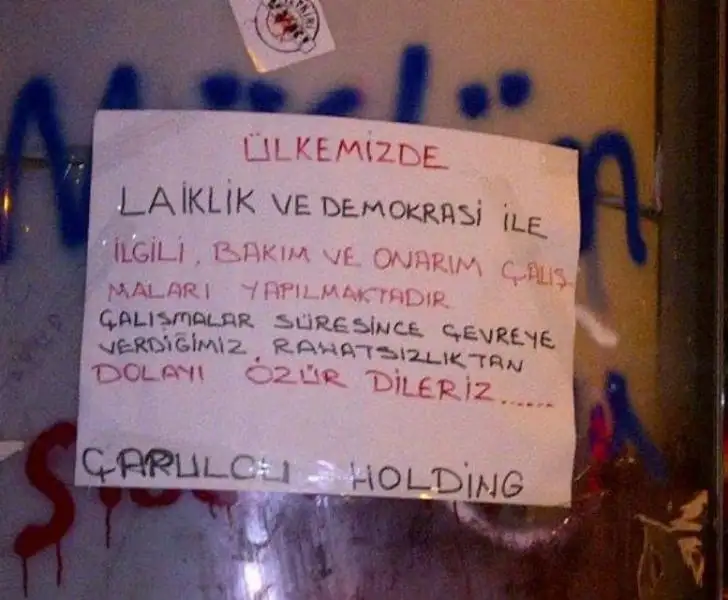 ÜLKEMİZDE
LAİKLİK VE DEMOKRASİ İLE
İLGİLİ, BAKIM VE ONARIM ÇALIŞ
MALARI YAPILMAKTADIR
ÇALIŞMALAR SÜRESİNCE ÇEVREYE
VERDİĞİMİZ RAHATSIZLIKTAN
DOLAYI ÖZÜR DİLERİZ......
ÇAPULCU HOLDİNG